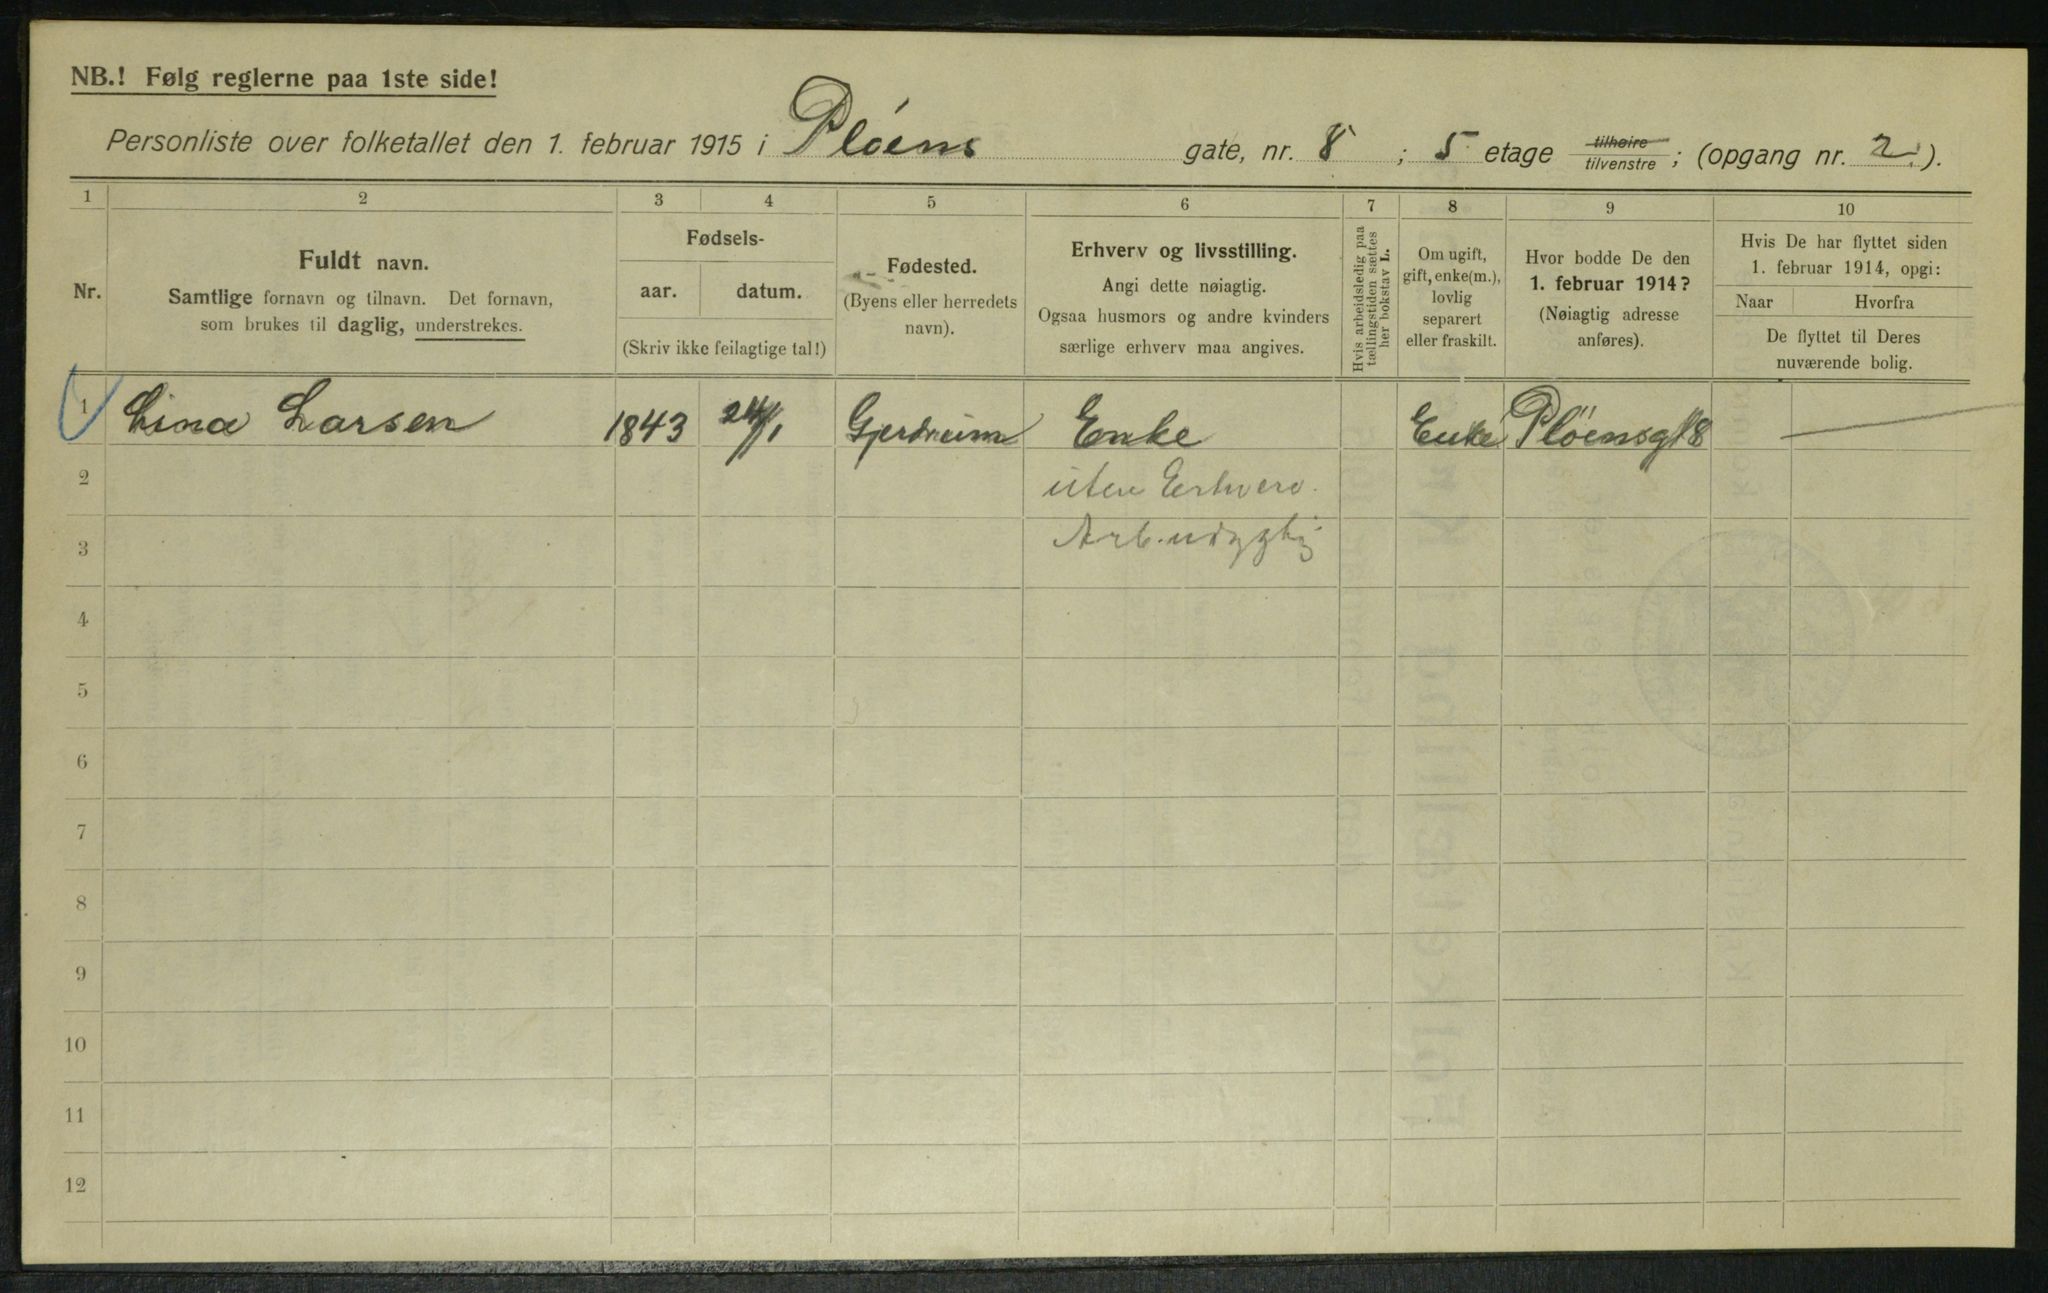 NB.! Følg reglerne paa 1ste side!
Personliste over folketallet den 1. februar 1915 i Pløens gate, nr. 8 ; 5 etage tilhøire / tilvenstre ; (opgang nr. 2.).
1 2 3 4 5 6 7 8 9 10
Nr.
Fuldt navn.
Samtlige fornavn og tilnavn. Det fornavn,
som brukes til daglig, understrekes.
Fødsels-
aar. datum.
(Skriv ikke feilagtige tal!)
Fødested.
(Byens eller herredets
navn).
Erhverv og livsstilling.
Angi dette nøiagtig.
Ogsaa husmors og andre kvinders
særlige erhverv maa angives.
Hvis arbeidsledig paa
tællingstiden sættes
her bokstav L.
Om ugift,
gift, enke(m.),
lovlig
separert
eller fraskilt.
Hvor bodde De den
1. februar 1914?
(Nøiagtig adresse
anføres).
Hvis De har flyttet siden
1. februar 1914, opgi:
Naar Hvorfra
De flyttet til Deres
nuværende bolig.
1 Lina Larsen 1843 24/1 Gjerdrum Enke Enke Pløensgt 8
2 uten Erhverv.
3 Arb.udygtig
4
5
6
7
8
9
10
11
12